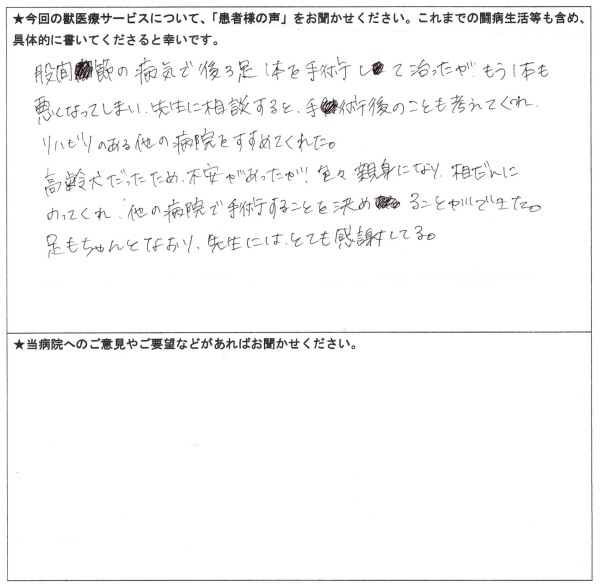 ★今回の獣医療サービスについて、「患者様の声」をお聞かせください。これまでの闘病生活等も含め、
具体的に書いてくださると幸いです。
股関節の病気で後ろ足1本を手術して治ったが、もう1本も
悪くなってしまい、先生に相談すると、手術後のことも考えてくれ、
リハビリのある他の病院をすすめてくれた。
高齢犬だったため、不安があったが、色々親身になり、相だんに
のってくれ、他の病院で手術することを決めることができた。
足もちゃんとなおり、先生には、とても感謝してる。
★当病院へのご意見やご要望などがあればお聞かせください。